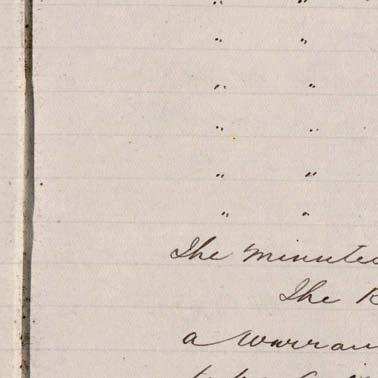 " "
" "
" "
" "
" "
" "
The minutes
The
a warran